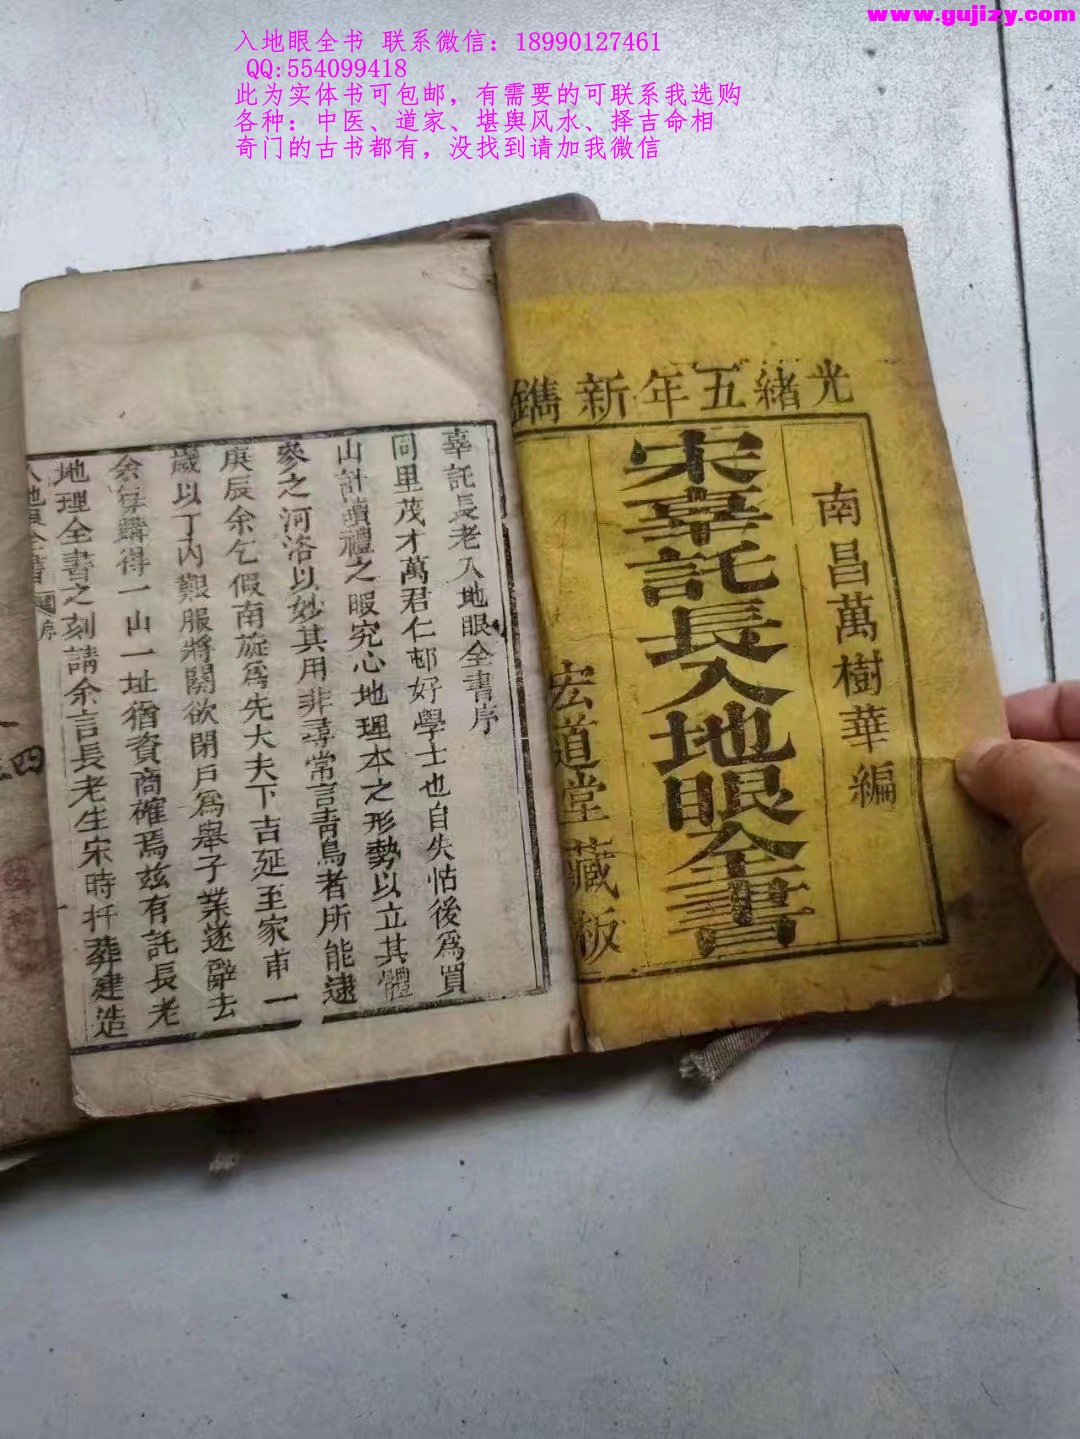 www.gujizy.com
入地眼全书 联系微信：18990127461
QQ:554099418
此为实体书可包邮，有需要的可联系我选购
各种：中医、道家、堪舆风水、择吉命相
奇门的古书都有，没找到请加我微信
光緒五年新鐫
南昌萬樹華編
宋辜託長入地眼全書
宏道堂藏板
辜託長老入地眼全書序
同里茂才萬君仁邨好學士也自失怙後為買
山計讀禮之暇究心地理本之形勢以立其體
參之河洛以妙其用非尋常言青鳥者所能逮
庚辰余乞假南旋為先大夫下吉延至家甫一
歲以丁內艱服將闋欲閉戶為舉子業遂辭去
余每購得一山一址猶資商確焉茲有託長老
地理全書之刻請余言長老生宋時扦葬建造
入地眼全書
序
四